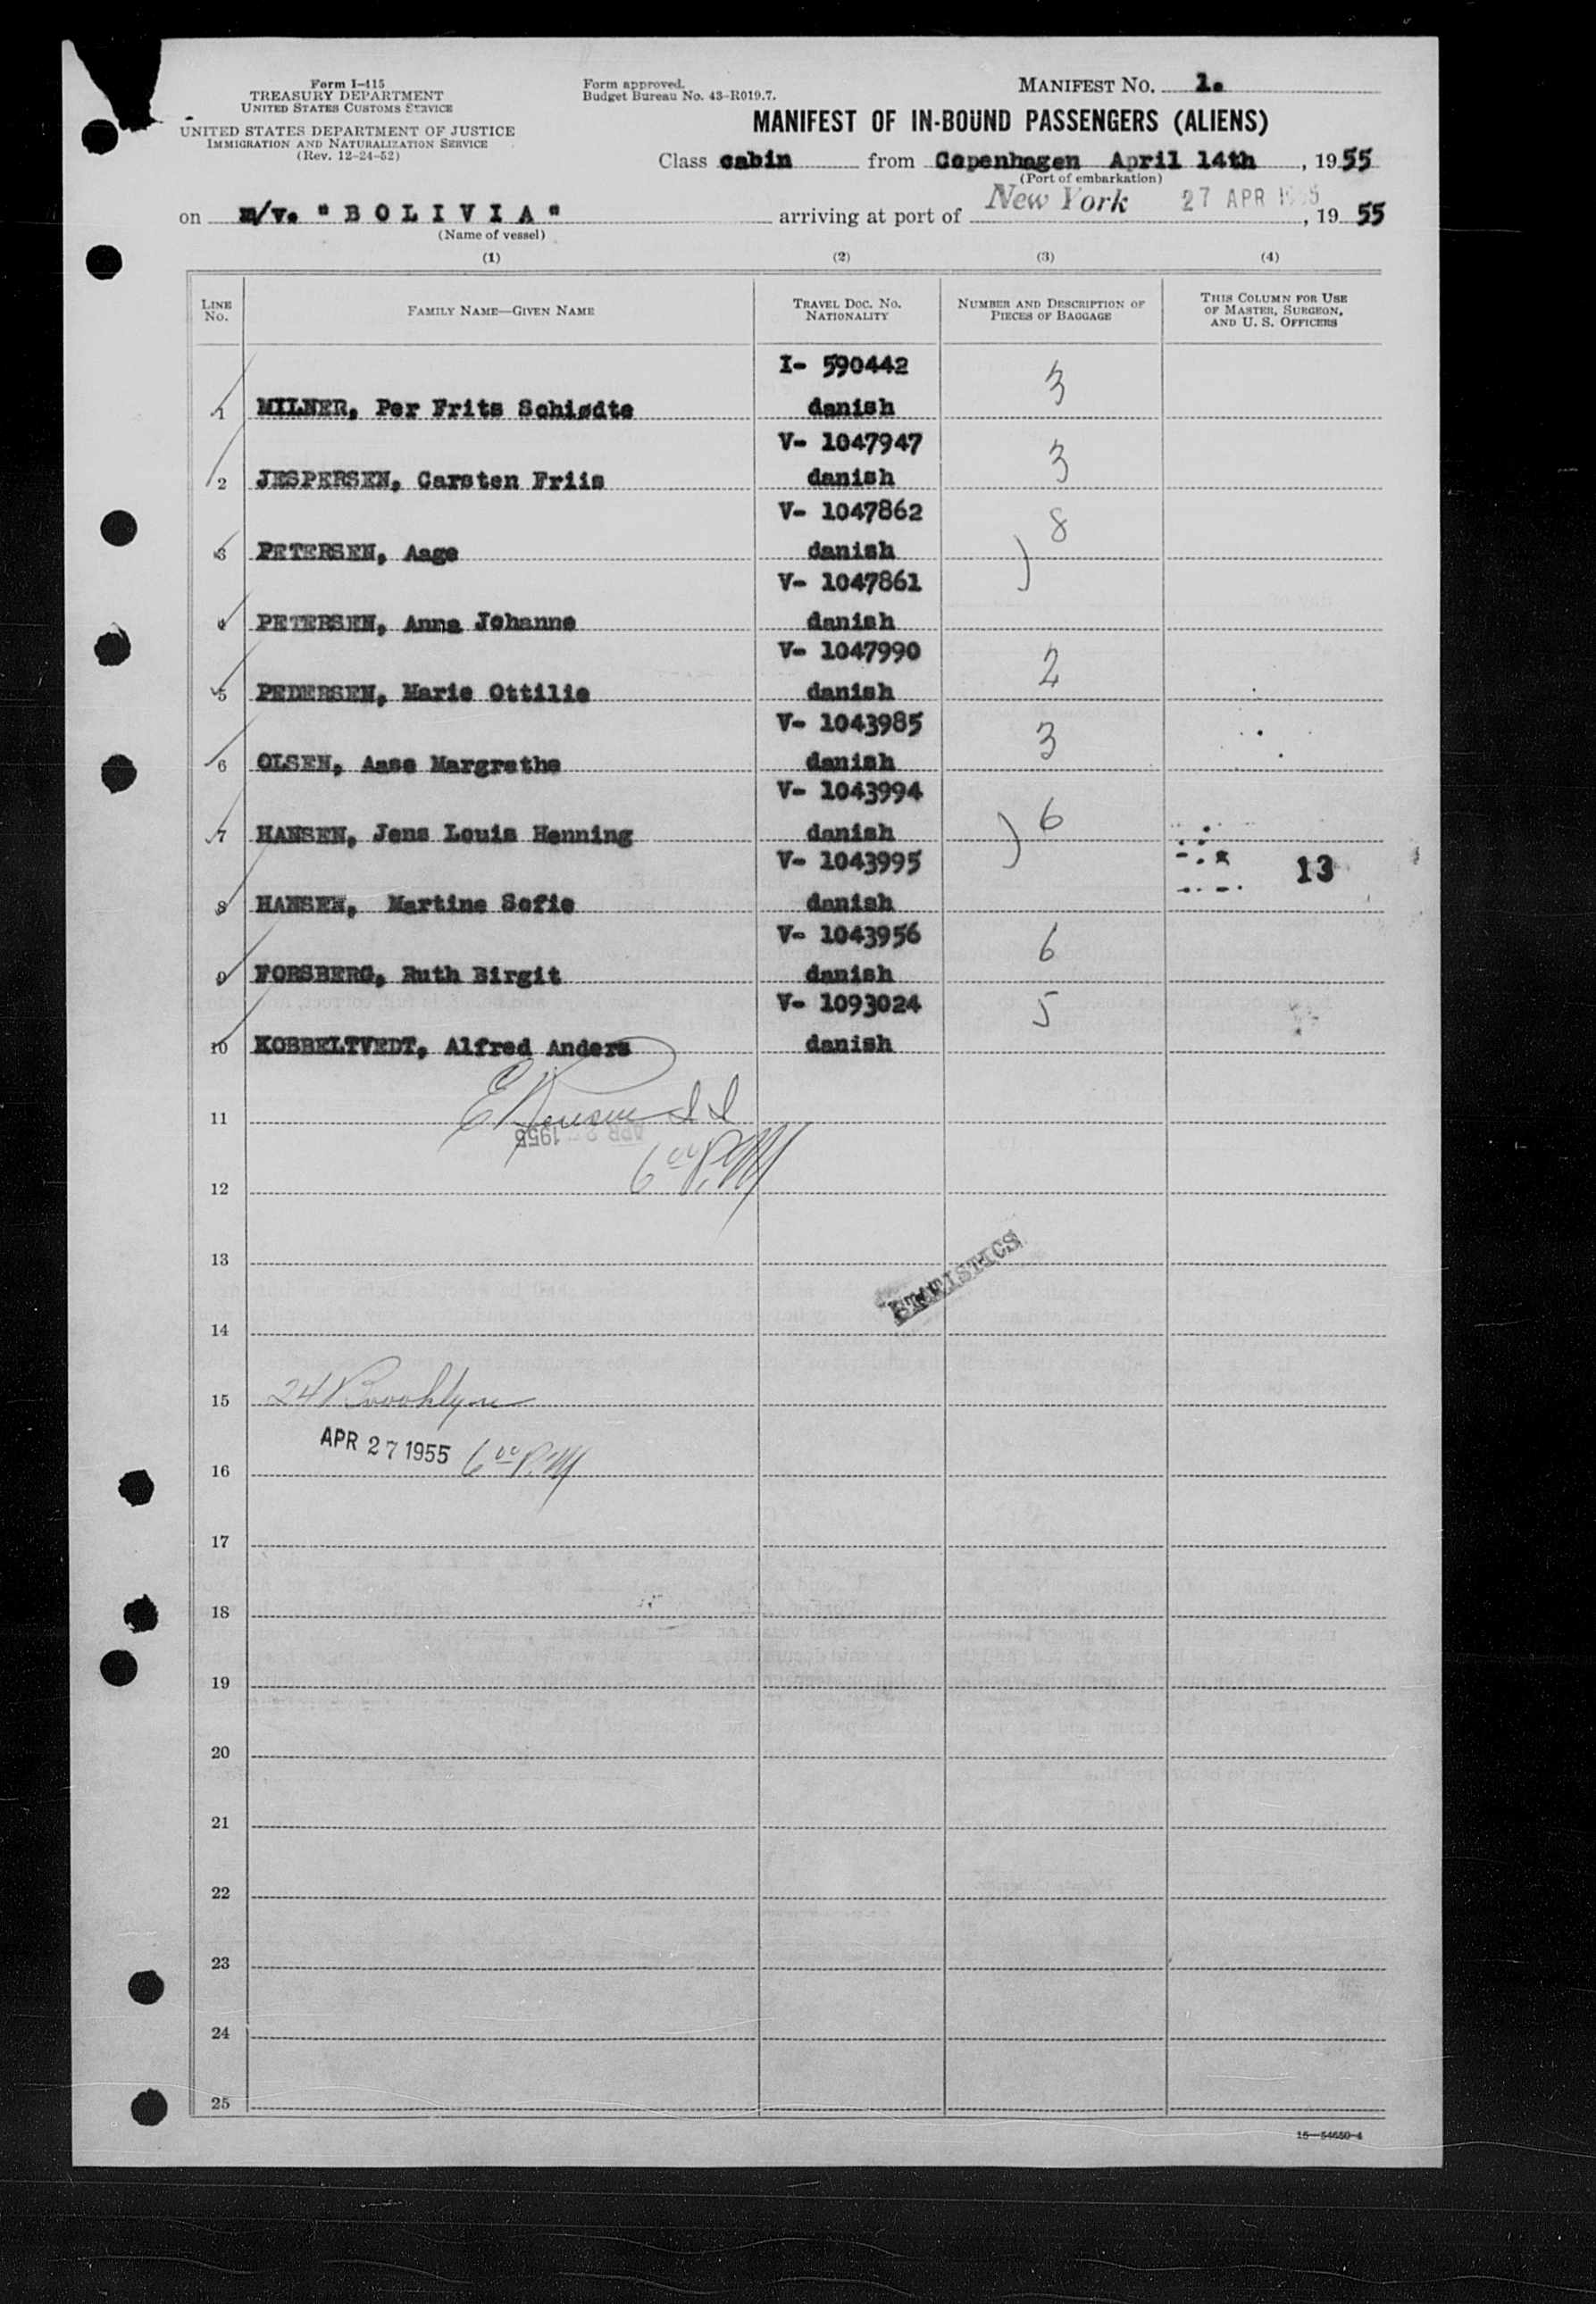 Form I-415
TREASURY DEPARTMENT
UNITED STATES CUSTOMS SERVICE
UNITED STATES DEPARTMENT OF JUSTICE
IMMIGRATION AND NATURALIZATION SERVICE
(Rev. 12-24-52)
Form approved.
Budget Bureau No. 43-R019.7.
MANIFEST NO. 1.
MANIFEST OF IN-BOUND PASSENGERS (ALIENS)
Class cabin from Copenhagen April 14th, 1955
(Port of embarkation)
on m/v. "BOLIVIA" arriving at port of New York 27 APR 1955, 1955
(Name of vessel)
(1) (2) (3) (4)
LINE NO. FAMILY NAME—GIVEN NAME TRAVEL DOC. NO. NATIONALITY NUMBER AND DESCRIPTION OF PIECES OF BAGGAGE THIS COLUMN FOR USE OF MASTER, SURGEON, AND U. S. OFFICERS
I- 590442 3
1 MILNER, Per Frits Schiødte danish
V- 1047947 3
2 JESPERSEN, Carsten Friis danish
V- 1047862 8
3 PETERSEN, Aage danish )
V- 1047861
4 PETERSEN, Anna Johanne danish
V- 1047990 2
5 PEDERSEN, Marie Ottilie danish
V- 1043985 3
6 OLSEN, Aase Margrethe danish
V- 1043994 6
7 HANSEN, Jens Louis Henning danish )
V- 1043995 13
8 HANSEN, Martine Sofie danish
V- 1043956 6
9 FORSBERG, Ruth Birgit danish
V- 1093024 5
10 KOBBELTVEDT, Alfred Anders danish
11
APR 2 1955
6 00 P.M
12
13
STATISTICS
14
15 24 Brooklyn
APR 27 1955 6 00 P.M
16
17
18
19
20
21
22
23
24
25
16—54650-4